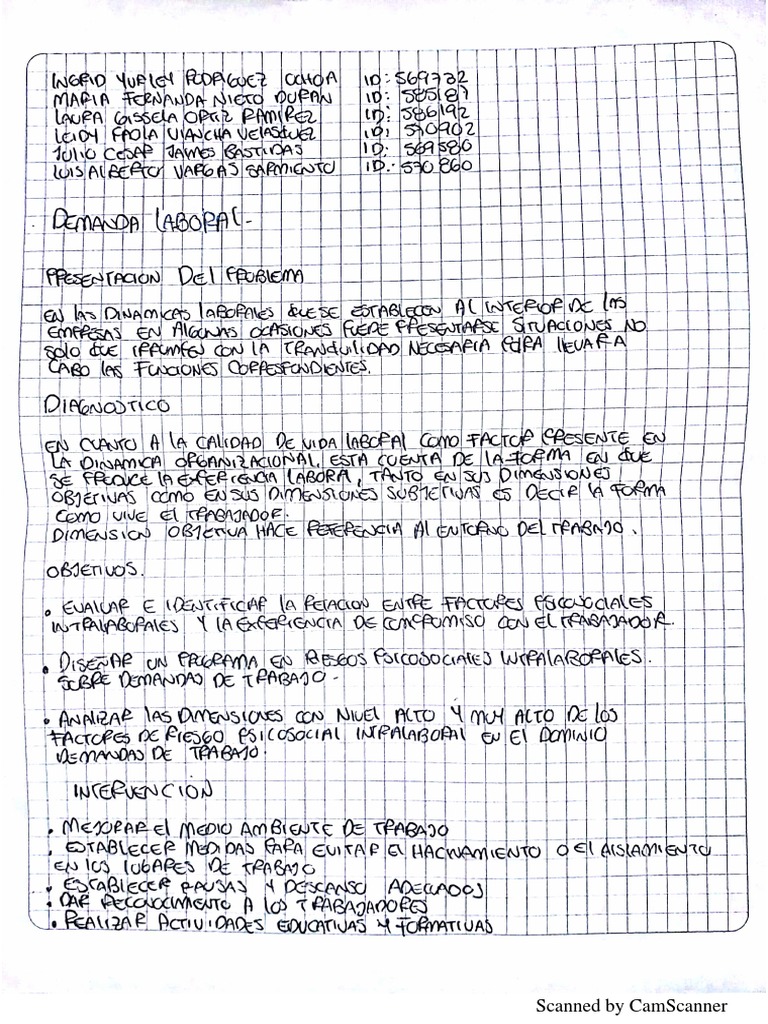 INGRID YURLEY RODRIGUEZ OCHOA ID: 569732
MARIA FERNANDA NIETO DURAN ID: 585187
LAURA GISSELA ORTIZ RAMIREZ ID: 586192
LEIDY PAOLA VIANCHA VELASQUEZ ID: 570902
JULIO CESAR JAMES BASTIDAS ID: 569580
LUIS ALBERTO VARGAS SARMIENTO ID: 570860
DEMANDA LABORAL-
PRESENTACION DEL PROBLEMA
EN LAS DINAMICAS LABORALES QUE SE ESTABLECEN AL INTERIOR DE LAS
EMPRESAS EN ALGUNAS OCASIONES PUEDE PRESENTARSE SITUACIONES NO
SOLO QUE IRRUMPEN CON LA TRANQUILIDAD NECESARIA PARA LLEVAR A
CABO LAS FUNCIONES CORRESPONDIENTES.
DIAGNOSTICO
EN CUANTO A LA CALIDAD DE VIDA LABORAL COMO FACTOR PRESENTE EN
LA DINAMICA ORGANIZACIONAL, ESTA CUENTA DE LA FORMA EN QUE
SE PRODUCE LA EXPERIENCIA LABORA, TANTO EN SUS DIMENSIONES
OBJETIVAS COMO EN SUS DIMENSIONES SUBJETIVAS ES DECIR LA FORMA
COMO VIVE EL TRABAJADOR.
DIMENSION OBJETIVA HACE REFERENCIA AL ENTORNO DEL TRABAJO.
OBJETIVOS.
• EVALUAR E IDENTIFICAR LA RELACION ENTRE FACTORES PSICOSOCIALES
INTRALABORALES Y LA EXPERIENCIA DE COMPROMISO CON EL TRABAJADOR.
• DISEÑAR UN PROGRAMA EN RIESGOS PSICOSOCIALES INTRALABORALES.
SOBRE DEMANDAS DE TRABAJO-
• ANALIZAR LAS DIMENSIONES CON NIVEL ALTO Y MUY ALTO DE LOS
FACTORES DE RIESGO PSICOSOCIAL INTRALABORAL EN EL DOMINIO
DEMANDAS DE TRABAJO.
INTERVENCIÓN
• MEJORAR EL MEDIO AMBIENTE DE TRABAJO
• ESTABLECER MEDIDAS PARA EVITAR EL HACINAMIENTO O EL AISLAMIENTO
EN LOS LUGARES DE TRABAJO
• ESTABLECER PAUSAS Y DESCANSO ADECUADOS
• DAR RECONOCIMIENTO A LOS TRABAJADORES
• REALIZAR ACTIVIDADES EDUCATIVAS Y FORMATIVAS
Scanned by CamScanner